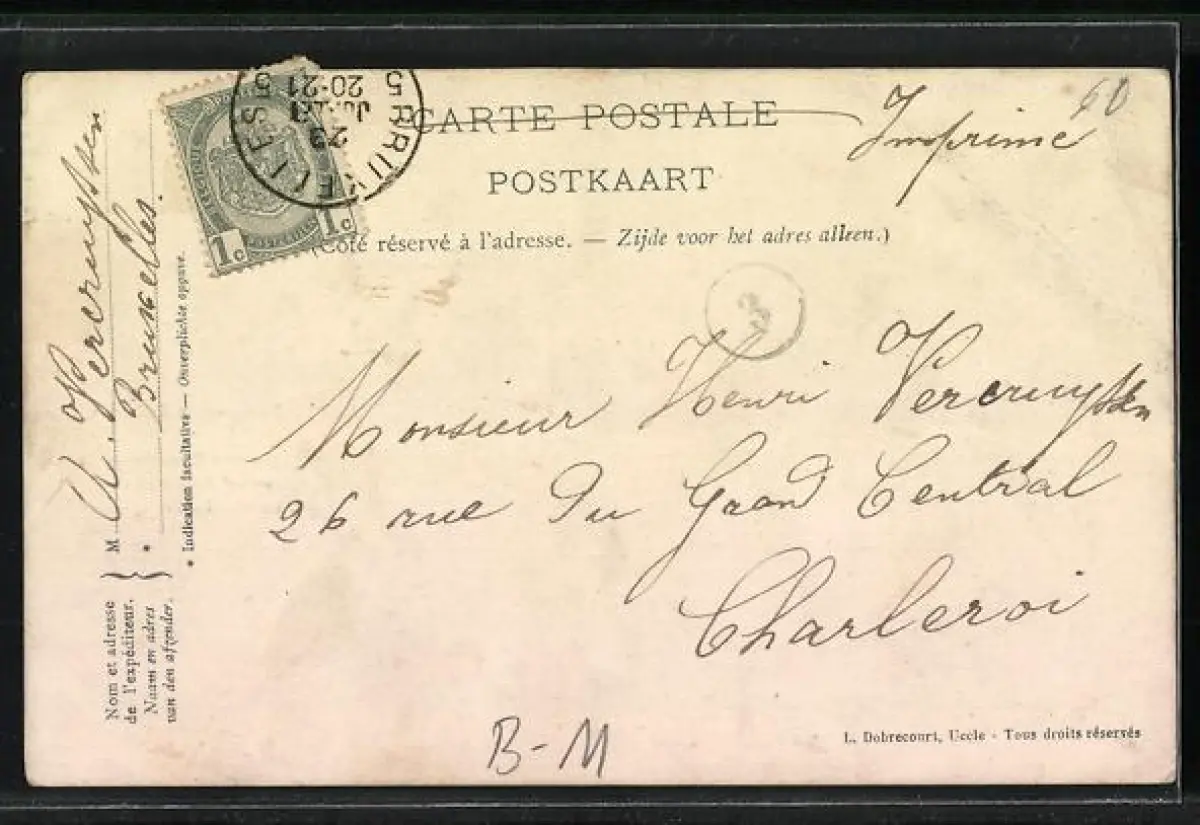 CARTE POSTALE
Imprimé
60
POSTKAART
(Côté réservé à l'adresse. — Zijde voor het adres alleen.)
BRUXELLES 5
23
JUIL
20-21
1c 1c
3
Monsieur Henri Vercruyssen
26 rue Du Grand Central
Charleroi
B-M
L. Dobrecourt, Uccle - Tous droits réservés
Nom et adresse
de l'expéditeur.
Naam en adres
van den afzender.
M A. Vercruyssen
Bruxelles.
* Indication facultative — Onverplichte opgave.